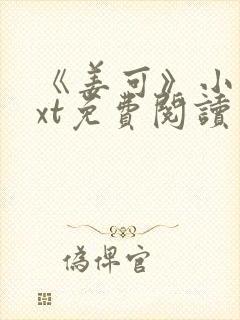 《姜可》小
xt免費閱讀
偽俾官